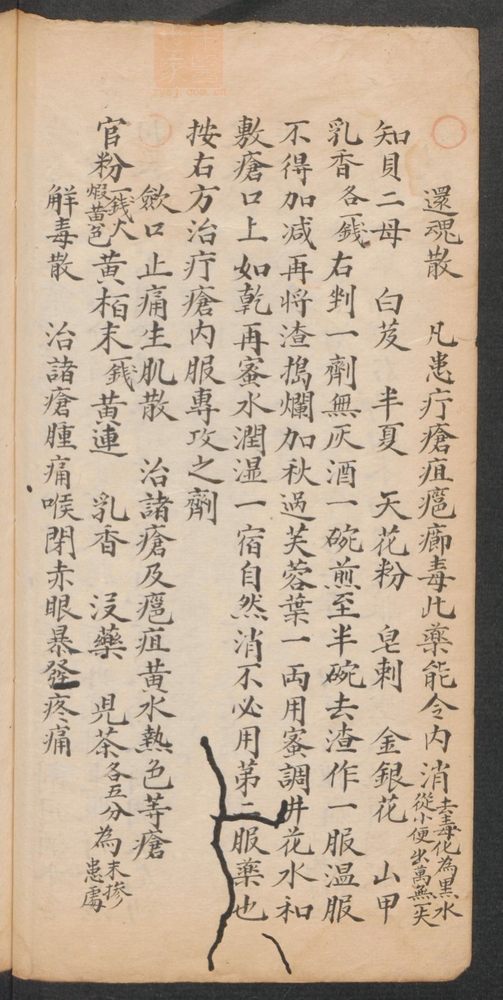 還魂散　凡患疔瘡疽癰癤毒此藥能令內消去毒化為黑水從小便出萬無一失
知貝二母　白芨　半夏　天花粉　皂刺　金銀花　山甲
乳香各一錢右剉一劑無灰酒一碗煎至半碗去渣作一服温服
不得加减再将渣搗爛加秋過芙蓉葉一両用蜜調井花水和
敷瘡口上如乾再蜜水潤湿一宿自然消不必用第二服藥也
按右方治疔瘡內服專攻之劑
歛口止痛生肌散　治諸瘡及癰疽黄水熱色等瘡
官粉一錢火煅黄色黄栢末一錢黄連　乳香　沒藥　児茶各五分為末摻患處
解毒散　治諸瘡腫痛喉閉赤眼暴發疼痛